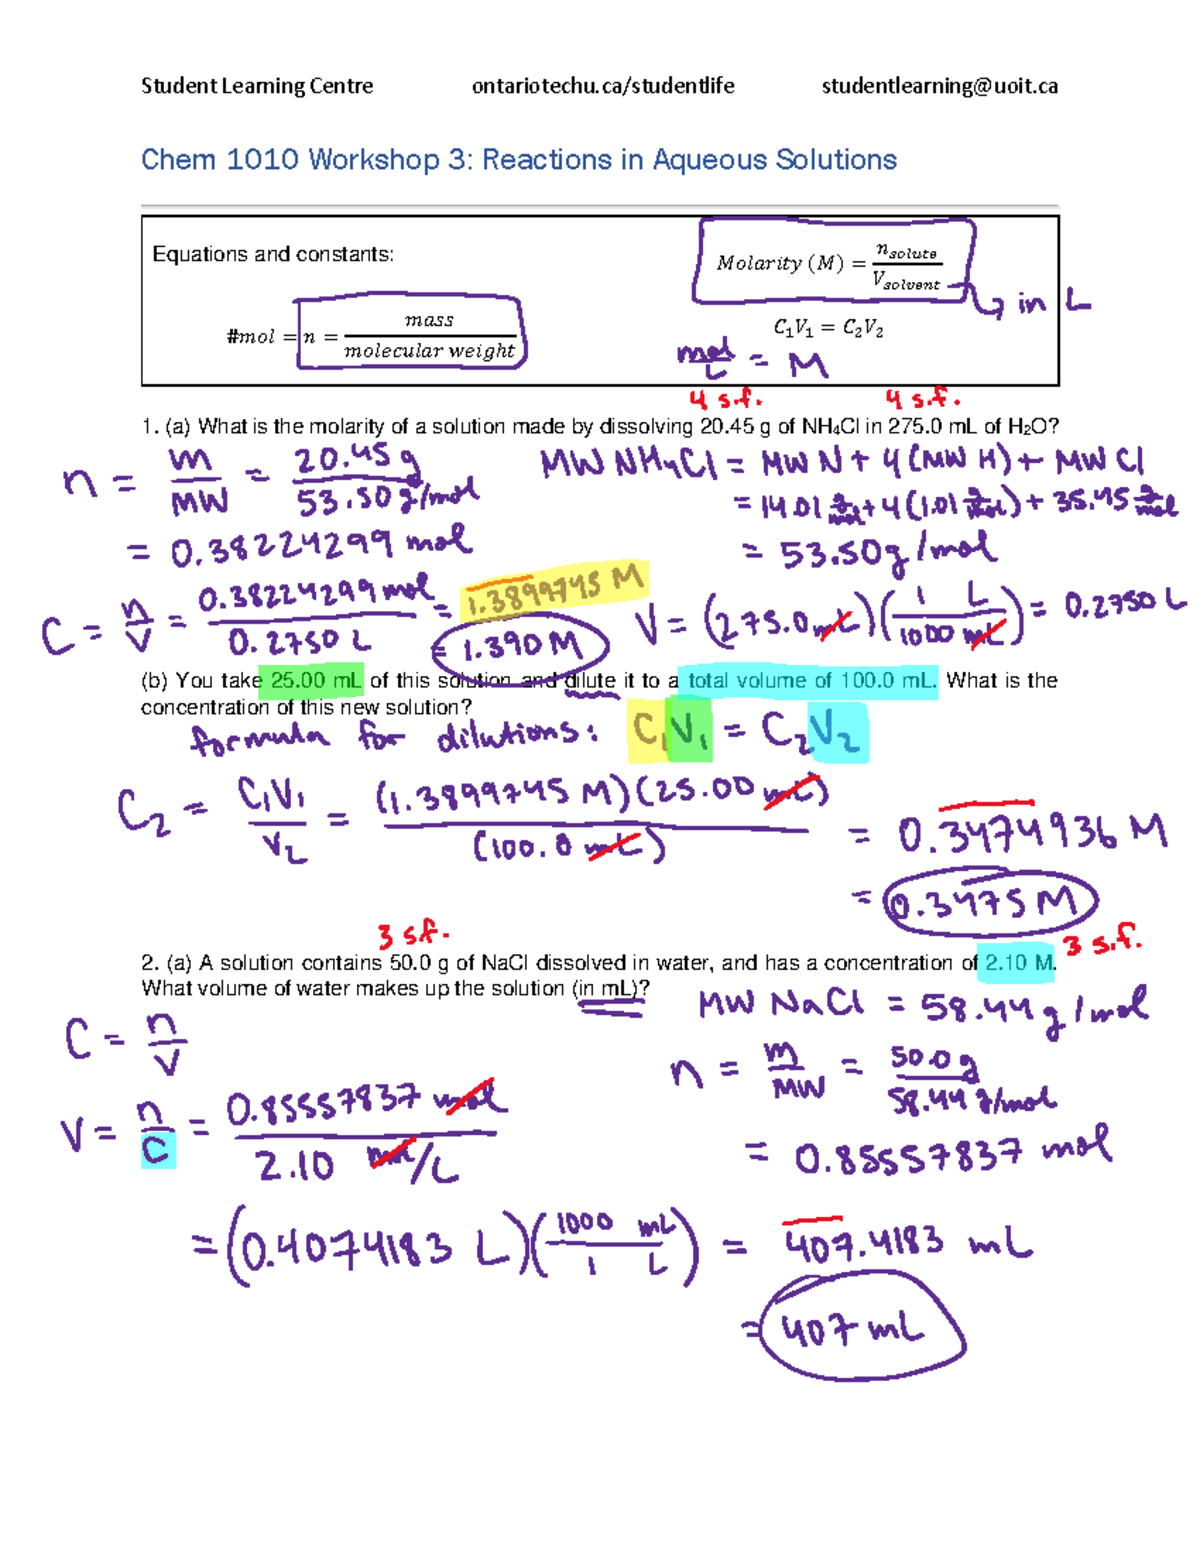 Student Learning Centre ontariotechu.ca/studentlife studentlearning@uoit.ca
Chem 1010 Workshop 3: Reactions in Aqueous Solutions
Equations and constants:
Molarity (M) = n_solute / V_solvent → in L
#mol = n = mass / molecular weight
C₁V₁ = C₂V₂
mol/L = M
4 s.f. 4 s.f.
1. (a) What is the molarity of a solution made by dissolving 20.45 g of NH₄Cl in 275.0 mL of H₂O?
n = m/MW = 20.45 g / 53.50 g/mol
= 0.38224299 mol
MW NH₄Cl = MW N + 4 (MW H) + MW Cl
= 14.01 g/mol + 4 (1.01 g/mol) + 35.45 g/mol
= 53.50 g/mol
C = n/V = 0.38224299 mol / 0.2750 L = 1.3899745 M
= 1.390 M
V = (275.0 mL)(1 L / 1000 mL) = 0.2750 L
(b) You take 25.00 mL of this solution and dilute it to a total volume of 100.0 mL. What is the
concentration of this new solution?
formula for dilutions: C₁V₁ = C₂V₂
C₂ = C₁V₁ / V₂ = (1.3899745 M)(25.00 mL) / (100.0 mL) = 0.3474936 M
= 0.3475 M
3 s.f. 3 s.f.
2. (a) A solution contains 50.0 g of NaCl dissolved in water, and has a concentration of 2.10 M.
What volume of water makes up the solution (in mL)?
MW NaCl = 58.44 g/mol
C = n/V
n = m/MW = 50.0 g / 58.44 g/mol
= 0.85557837 mol
V = n/C = 0.85557837 mol / 2.10 mol/L
= (0.4074183 L)(1000 mL / 1 L) = 407.4183 mL
= 407 mL